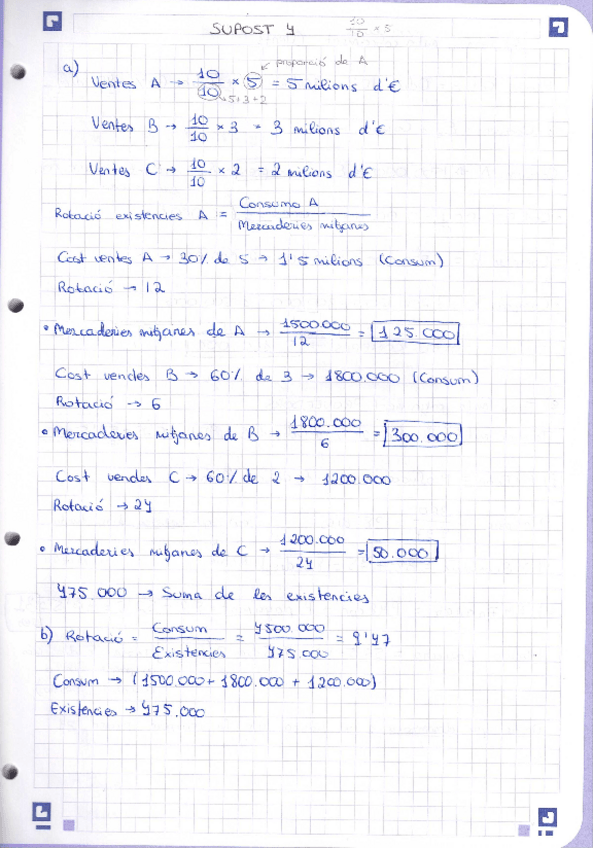 SUPOST 4
10/10 x 5
proporció de A
a) Ventes A → 10/10 × 5 = 5 milions d'€
5+3+2
Ventes B → 10/10 × 3 = 3 milions d'€
Ventes C → 10/10 × 2 = 2 milions d'€
Rotació existències A = Consumo A / Mercaderies mitjanes
Cost ventes A → 30% de 5 → 1'5 milions (Consum)
Rotació → 12
• Mercaderies mitjanes de A → 1500.000 / 12 = 125.000
Cost vendes B → 60% de 3 → 1800.000 (Consum)
Rotació → 6
• Mercaderies mitjanes de B → 1800.000 / 6 = 300.000
Cost vendes C → 60% de 2 → 1200.000
Rotació → 24
• Mercaderies mitjanes de C → 1200.000 / 24 = 50.000
475.000 → Suma de les existències
b) Rotació = Consum / Existències = 4500.000 / 475.000 = 9'47
Consum → (1500.000 + 1800.000 + 1200.000)
Existències → 475.000